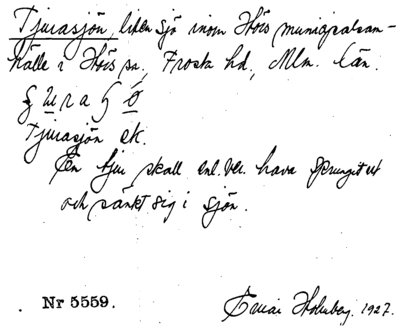 Tjurasjön, liten sjö inom Hörs municipalsam-
hälle i Hörs sn, Frosta hd, Mlm. län.
Tjurasjön ek.
En tjur skall enl. ver. hava sprungit ut
och sänkt sig i sjön.
Nr 5559.
Holmberg. 1927.